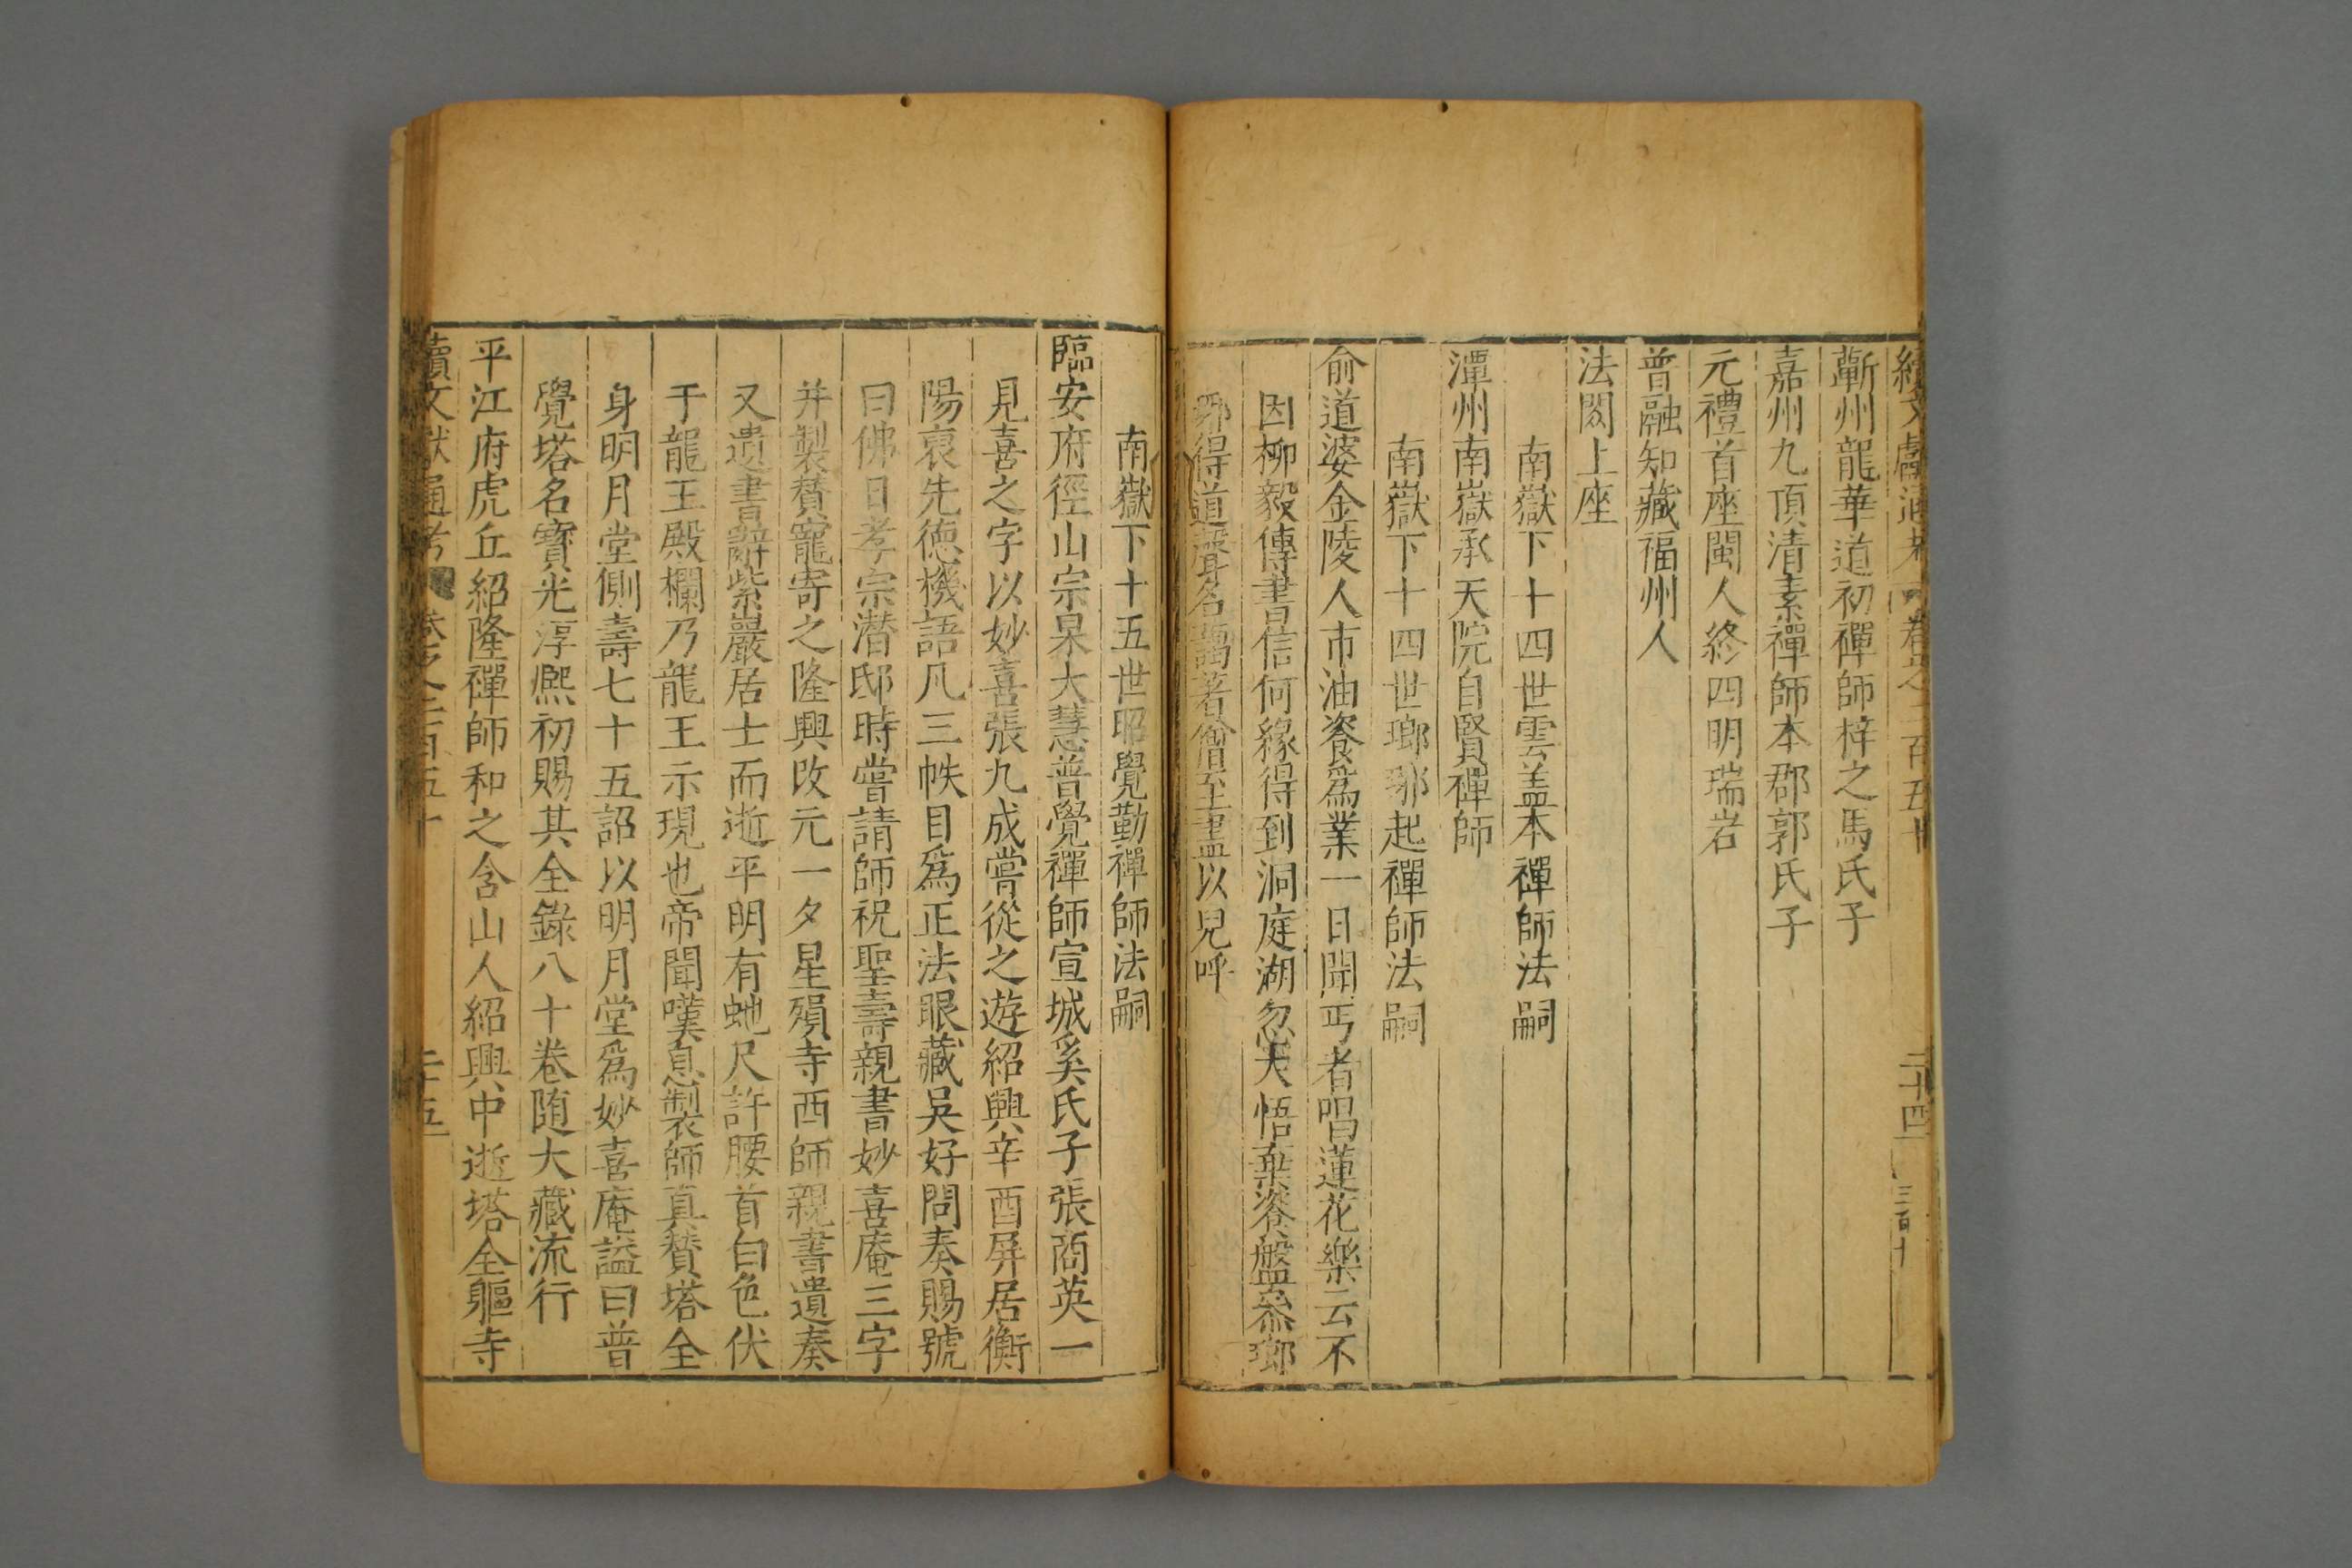 續文獻通考 卷之二百五十 二十四 三百十
蘄州龍華道初禪師梓之馬氏子
嘉州九頂清素禪師本郡郭氏子
元禮首座閩人終四明瑞岩
普融知藏福州人
法閎上座
南嶽下十四世雲盖本禪師法嗣
潭州南嶽承天院自賢禪師
南嶽下十四世瑯琊起禪師法嗣
俞道婆金陵人市油餈爲業一日聞丐者唱蓮花樂云不
因柳毅傳書信何緣得到洞庭湖忽大悟棄餈盤叅瑯
琊得道聲名藹著僧至盡以兒呼
南嶽下十五世昭覺勤禪師法嗣
臨安府徑山宗杲大慧普覺禪師宣城奚氏子張商英一
見喜之字以妙喜張九成嘗從之遊紹興辛酉屏居衡
陽裒先德機語凡三帙目爲正法眼藏吳好問奏賜號
曰佛日孝宗潜邸時嘗請師祝聖壽親書妙喜庵三字
并製賛寵寄之隆興改元一夕星殞寺西師親書遺奏
又遺書辭紫巖居士而逝平明有虵尺許腰首白色伏
于龍王殿欄乃龍王示現也帝聞嘆息製師真賛塔全
身明月堂側壽七十五詔以明月堂爲妙喜庵謚曰普
覺塔名寶光淳熈初賜其全錄八十卷随大藏流行
平江府虎丘紹隆禪師和之含山人紹興中逝塔全軀寺
續文獻通考 卷之二百五十 二十五